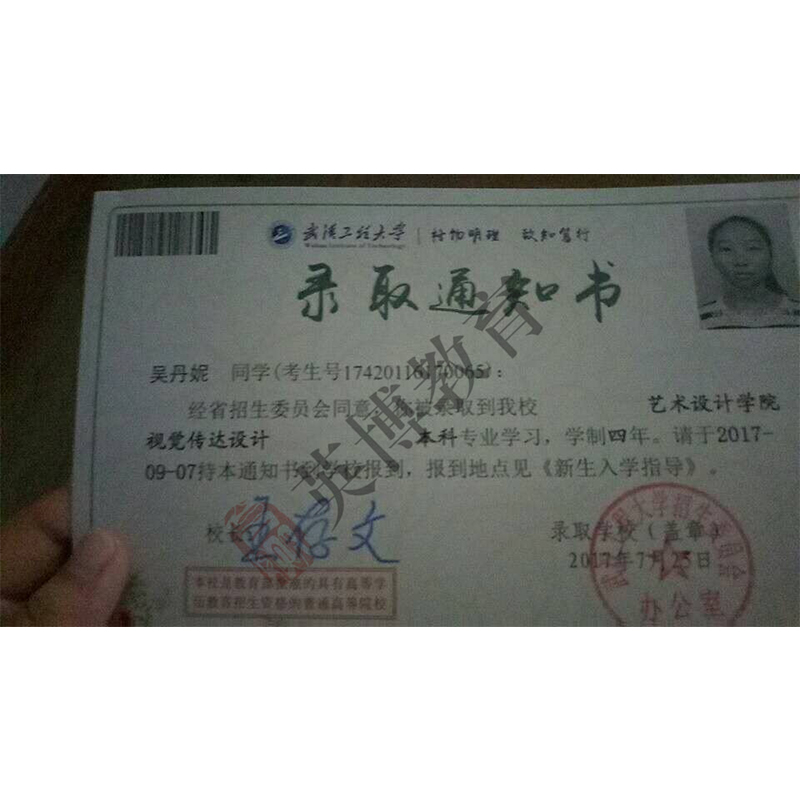 武汉工程大学 格物明理 致知笃行
Wuhan Institute of Technology
录取通知书
吴丹妮 同学(考生号17420116170065)：
经省招生委员会同意，你被录取到我校 艺术设计学院
视觉传达设计 本科专业学习，学制四年。请于2017-
09-07待本通知书到学校报到，报到地点见《新生入学指导》。
校长 王存文 录取学校（盖章）
2017年7月25日
本校是教育部批准的具有高等学
历教育招生资格的普通高等院校
武汉工程大学招生委员会
办公室
英博教育